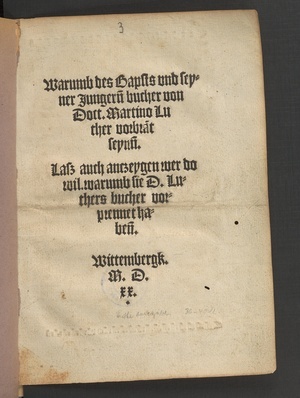 3
Warumb des Bapsts vnd sey-
ner Jungernn bucher von
Doct. Martino Lu
ther vorbrāt
seynn.
Lasz auch anczeygen wer do
wil. warumb sie D. Lu-
thers bucher vor-
prennet ha-
benn.
Wittembergk.
M. D.
xx.